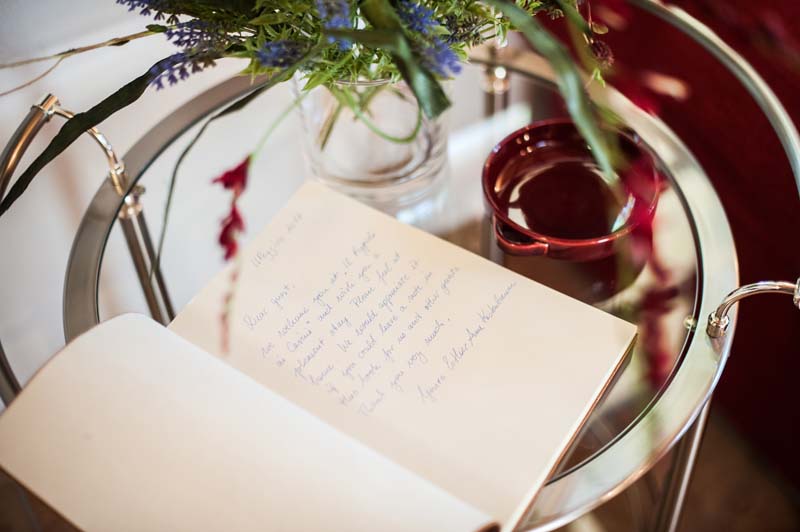 Dear guest,
we welcome you at "Il Poggiolo
and wish you a
pleasant stay. Please feel at
home. We would appreciate it
if you could leave a note in
this book for us and other guests
Thank you very much.
Yours Esther Anna